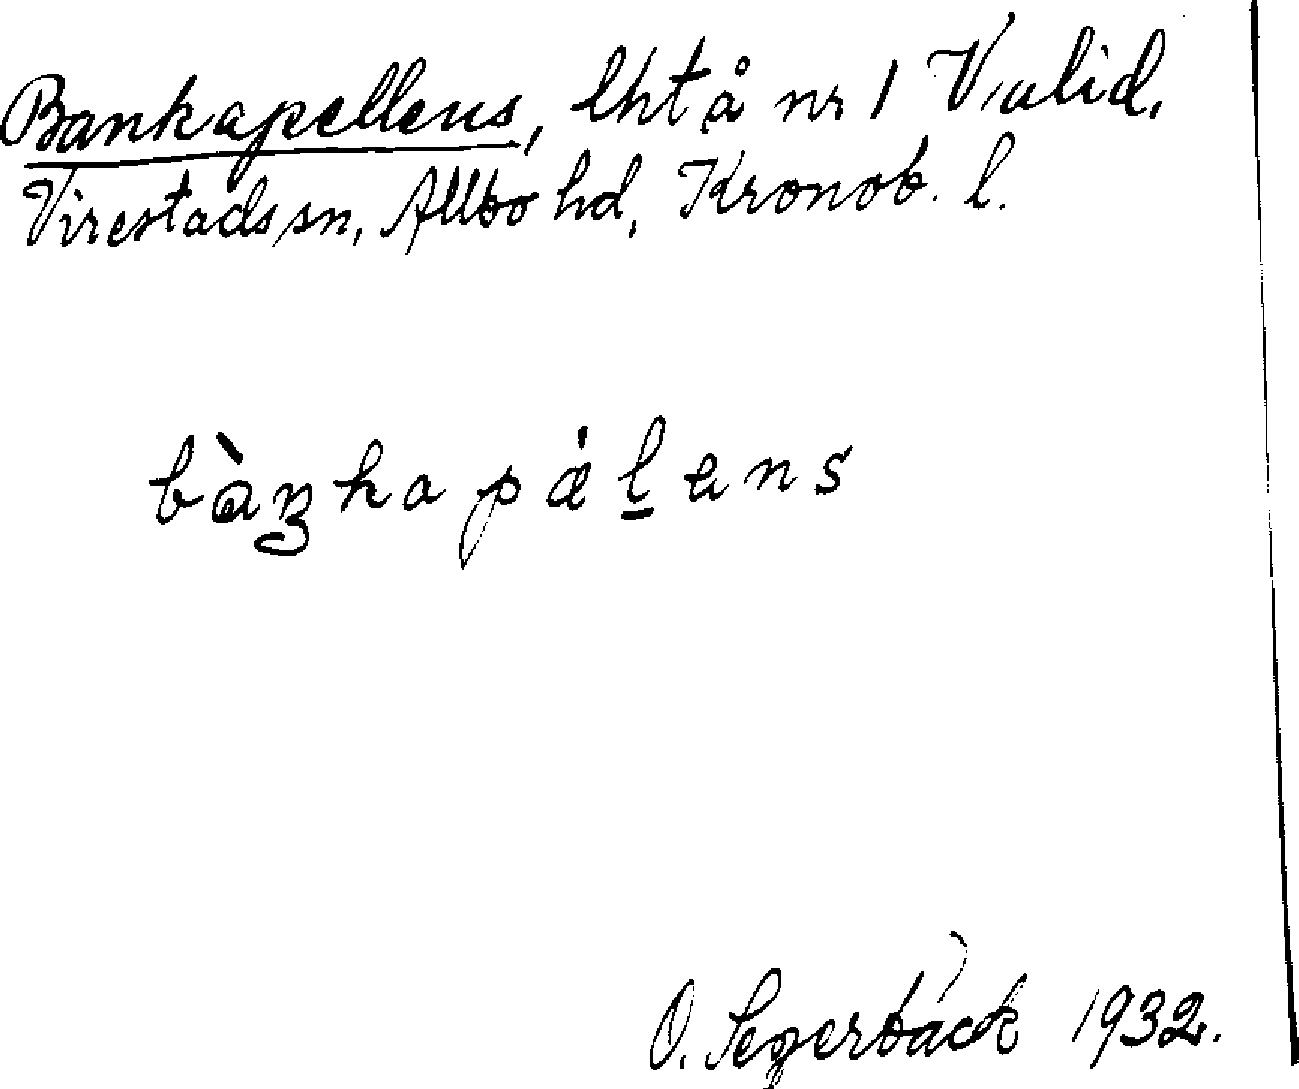 Bankapellens, lht å nr 1 Valid,
Virestads sn, Allbo hd, Kronob. l.
bàŋkapǽlens
O. Segerbäck 1932.